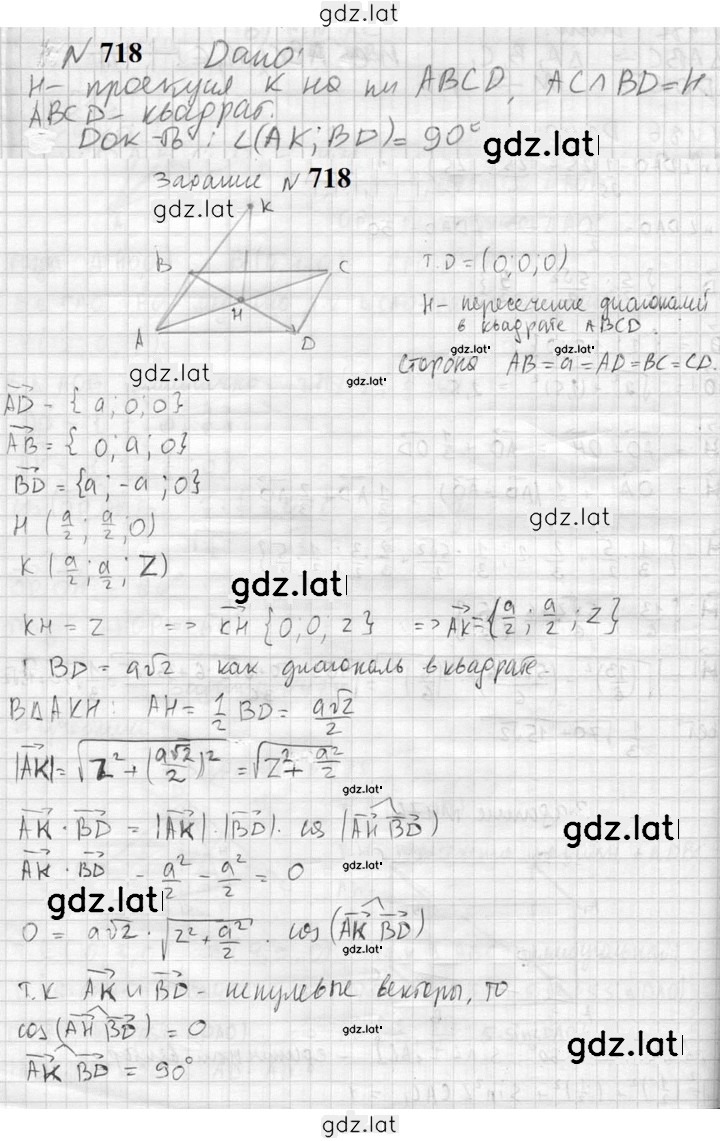 gdz.lat
N 718 Дано:
H - проекция K на пл ABCD, AC∩BD=H
ABCD - квадрат.
Док-ть: ∠(AK; BD)= 90°
gdz.lat
Задание N 718
gdz.lat
K
B
C
H
A
D
т. D = (0; 0; 0)
H - пересечение диагоналей
в квадрате ABCD.
gdz.lat gdz.lat
сторона AB = a = AD = BC = CD.
gdz.lat
gdz.lat
AD - { a; 0; 0}
AB = { 0; a; 0}
BD = {a; -a; 0}
gdz.lat
H (a/2; a/2; 0)
K (a/2; a/2; Z)
gdz.lat
KH = z => KH {0; 0; z} => AK = {a/2; a/2; z}
т. BD = a√2 как диагональ в квадрате
В Δ AKH: AH = 1/2 BD = a√2/2
|AK| = √(z² + (a√2/2)²) = √(z² + a²/2)
gdz.lat
AK · BD = |AK| · |BD| · cos (AH BD)
gdz.lat
AK · BD - a²/2 - a²/2 = 0
gdz.lat
gdz.lat
0 = a√2 · √(z² + a²/2) · cos (AK BD)
gdz.lat
т.к AK и BD - ненулевые векторы, то
cos (AH BD) = 0
gdz.lat
gdz.lat
AK BD = 90°
gdz.lat